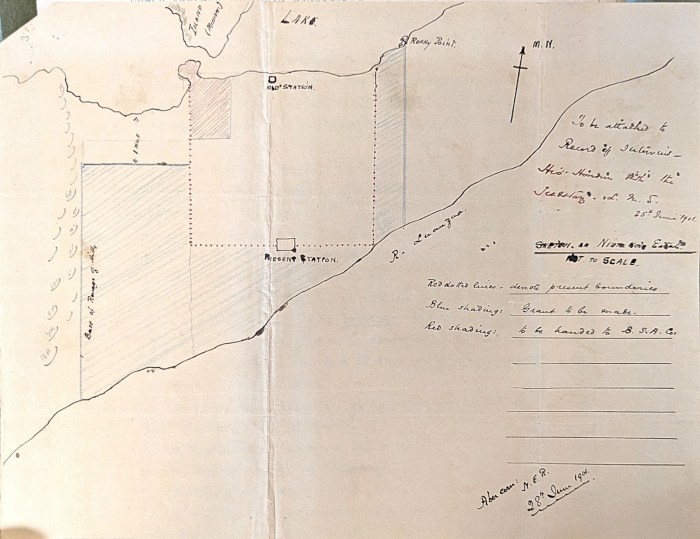 ISLAND
LAKE.
ROCKY POINT.
M.N.
OLD STATION.
1 MILE
To be attached to
Record of Interview -
His Honour with the
Secretary L. M. S.
25th June 1901.
R. Luangua
PRESENT STATION.
Base of Range of Hills
SKETCH
NOT TO SCALE.
Red dotted lines - denote present boundaries
Blue shading: Grant to be made.
Red shading: to be handed to B.S.A. Co.
Abercorn: N.E.R.
28th June 1901.